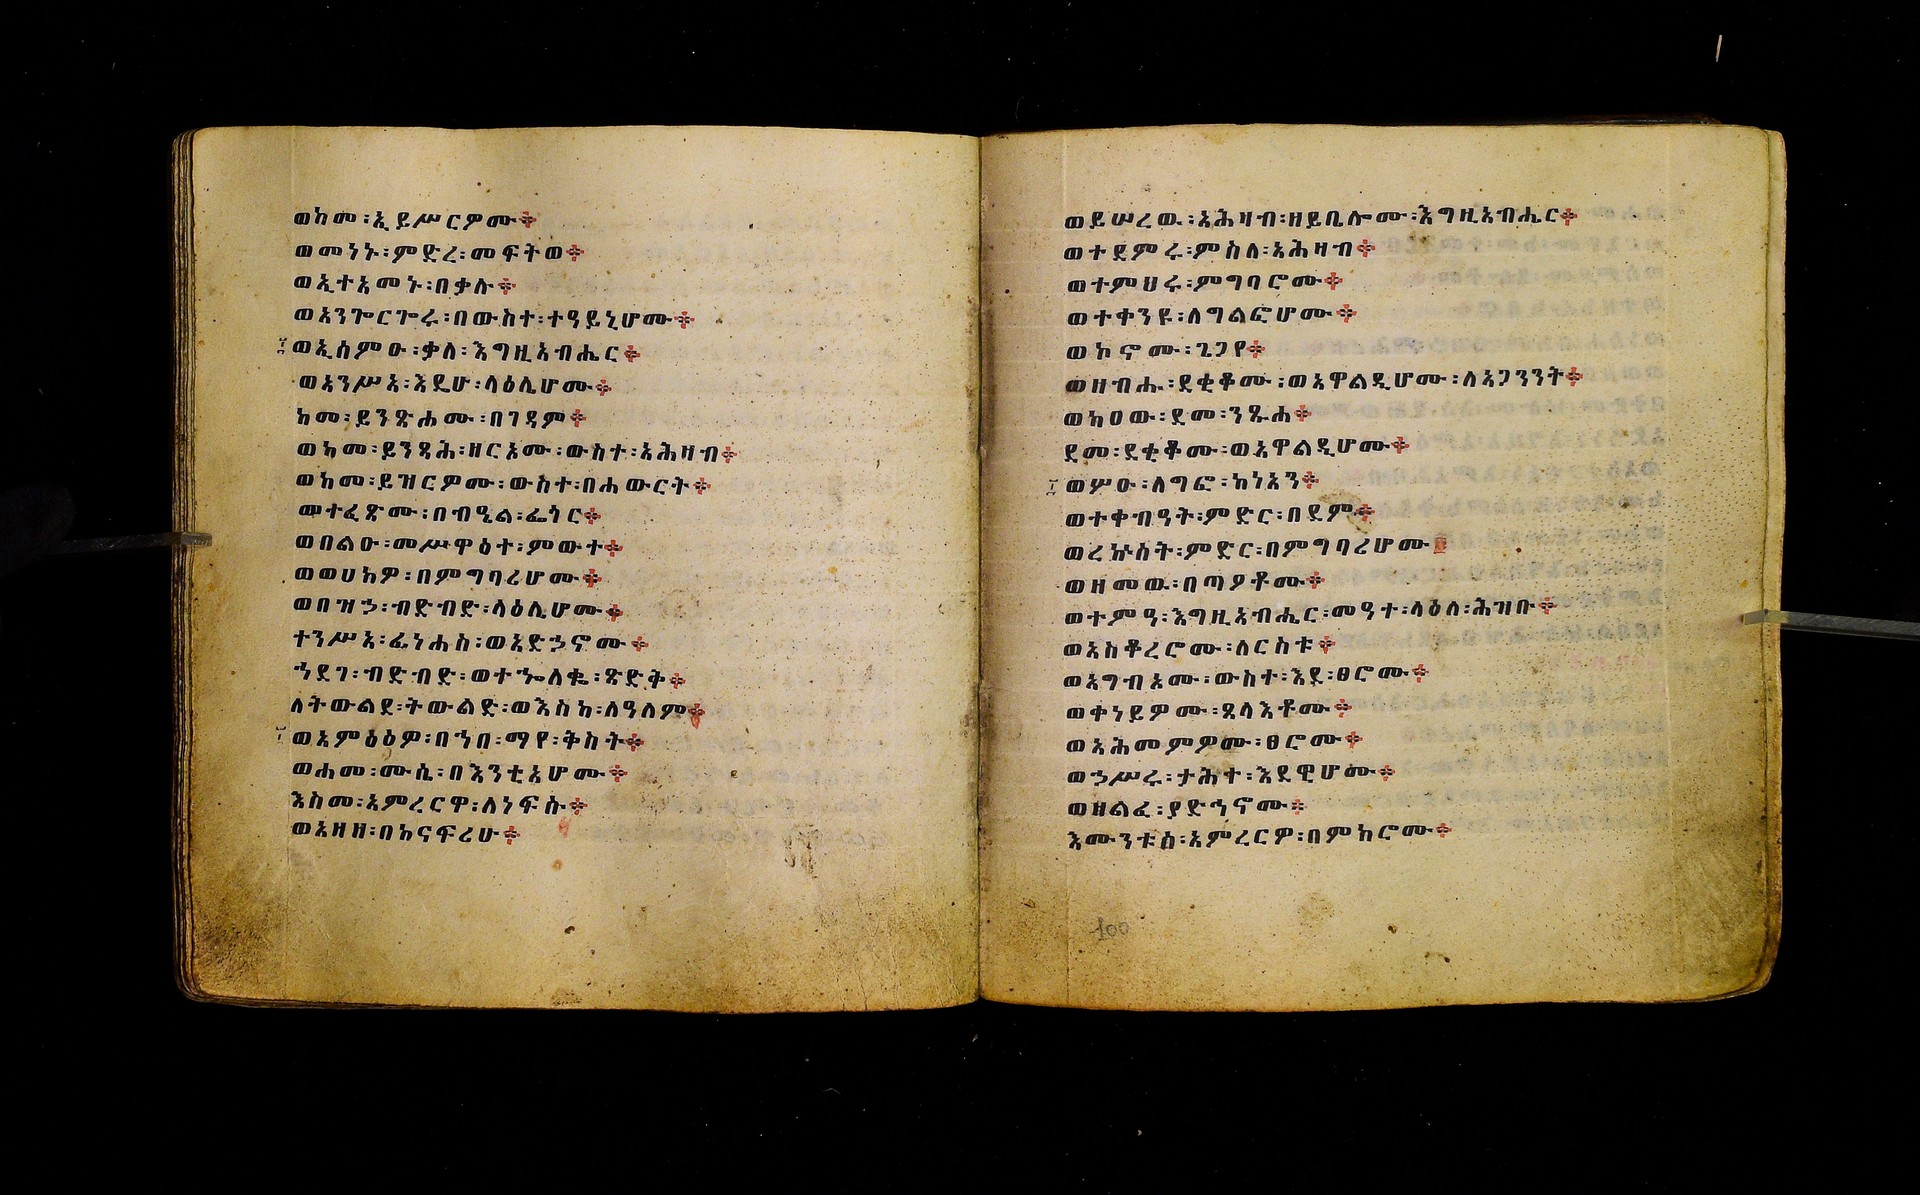 ወከመ፡ኢይሥርዎሙ፨
ወመነኑ፡ምድረ፡መፍትወ፨
ወኢተአመኑ፡በቃሉ፨
ወአንጐርጐሩ፡በውስተ፡ተዓይኒሆሙ፨
ወኢሰምዑ፡ቃለ፡እግዚአብሔር፨
ወአንሥአ፡እዴሁ፡ላዕሌሆሙ፨
ከመ፡ይንጽሖሙ፡በገዳም፨
ወከመ፡ይንጻሕ፡ዘርአሙ፡ውስተ፡አሕዛብ፨
ወከመ፡ይዝርዎሙ፡ውስተ፡በሐውርት፨
ወተፈጸሙ፡በብዔል፡ፌጎር፨
ወበልዑ፡መሥዋዕተ፡ምውተ፨
ወወሀከዎ፡በምግባሪሆሙ፨
ወበዝኃ፡ብድብድ፡ላዕሌሆሙ፨
ተንሥአ፡ፊነሐስ፡ወአድኃኖሙ፨
ኀደገ፡ብድብድ፡ወተኈለቈ፡ጽድቅ፨
ለትውልደ፡ትውልድ፡ወእስከ፡ለዓለም፨
ወአምዕዕዎ፡በኀበ፡ማየ፡ቅስት፨
ወሐመ፡ሙሴ፡በእንቲአሆሙ፨
እስመ፡አምረርዋ፡ለነፍሱ፨
ወአዘዘ፡በከናፍሪሁ፨
ወይሠረዉ፡አሕዛብ፡ዘይቤሎሙ፡እግዚአብሔር፨
ወተደምሩ፡ምስለ፡አሕዛብ፨
ወተምህሩ፡ምግባሮሙ፨
ወተቀንዩ፡ለግልፎሆሙ፨
ወኮኖሙ፡ጌጋየ፨
ወዘብሑ፡ደቂቆሙ፡ወአዋልዲሆሙ፡ለአጋንንት፨
ወከዐው፡ደመ፡ንጹሐ፨
ደመ፡ደቂቆሙ፡ወአዋልዲሆሙ፨
ወሦዑ፡ለግፎ፡ከነአን፨
ወተቀብዓት፡ምድር፡በደም፨
ወረኵሰት፡ምድር፡በምግባሪሆሙ፨
ወዘመዉ፡በጣዖቶሙ፨
ወተምዓ፡እግዚአብሔር፡መዓተ፡ላዕለ፡ሕዝቡ፨
ወአስቆረሮሙ፡ለርስቱ፨
ወአግብአሙ፡ውስተ፡እደ፡ፀሮሙ፨
ወቀነይዎሙ፡ጸላእቶሙ፨
ወአሕመምዎሙ፡ፀሮሙ፨
ወኃሥሩ፡ታሕተ፡እደዊሆሙ፨
ወዘልፈ፡ያድኅኖሙ፨
እሙንቱሰ፡አምረርዎ፡በምክሮሙ፨
100